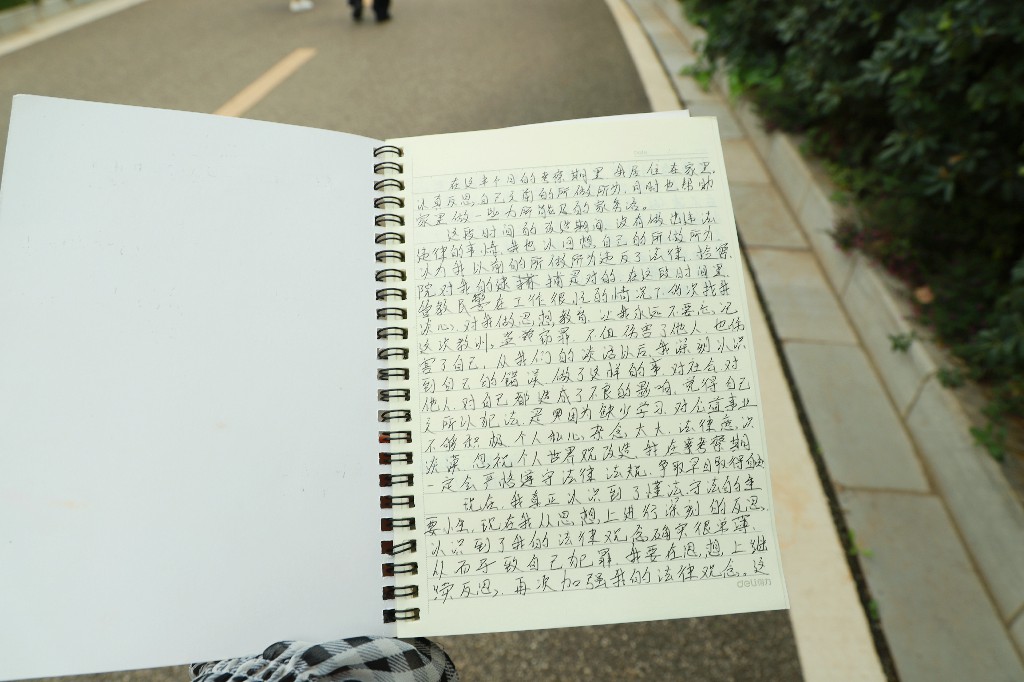 在这半个月的考察期里,我居住在家里。
认真反思自己之前的所做所为,同时也帮助
家里做一些力所能及的家务活。
这段时间的改造期间,没有做出违法
违律的事情,我也认回想自己的所做所为,
认为我以前的所做所为违反了法律,检察
院对我的逮捕 捕是对的,在这段时间里
管教民警在工作很忙的情况下,多次找我
谈心,对我做思想教育,让我永远不要忘记
这次教训。盗窃罪,不但伤害了他人,也伤
害了自己,从我们的谈话以后,我深刻认识
到自己的错误,做了这样的事,对社会,对
他人,对自己都造成了不良的影响,觉得自己
之所以犯法,是因为缺少学习,对公益事业
不够积极,个人私心,杂念太大,法律意识
淡漠,忽视个人世界观改造,我在考察期
一定会严格遵守法律 法规,争取早日取得
现在,我真正认识到了遵法守法的重
要性,现在我从思想上进行深刻的反思,
认识到了我的法律观念确实很单薄,
从而导致自己犯罪,我要在思想上继
续反思,再次加强我的法律观念。这
deli得力